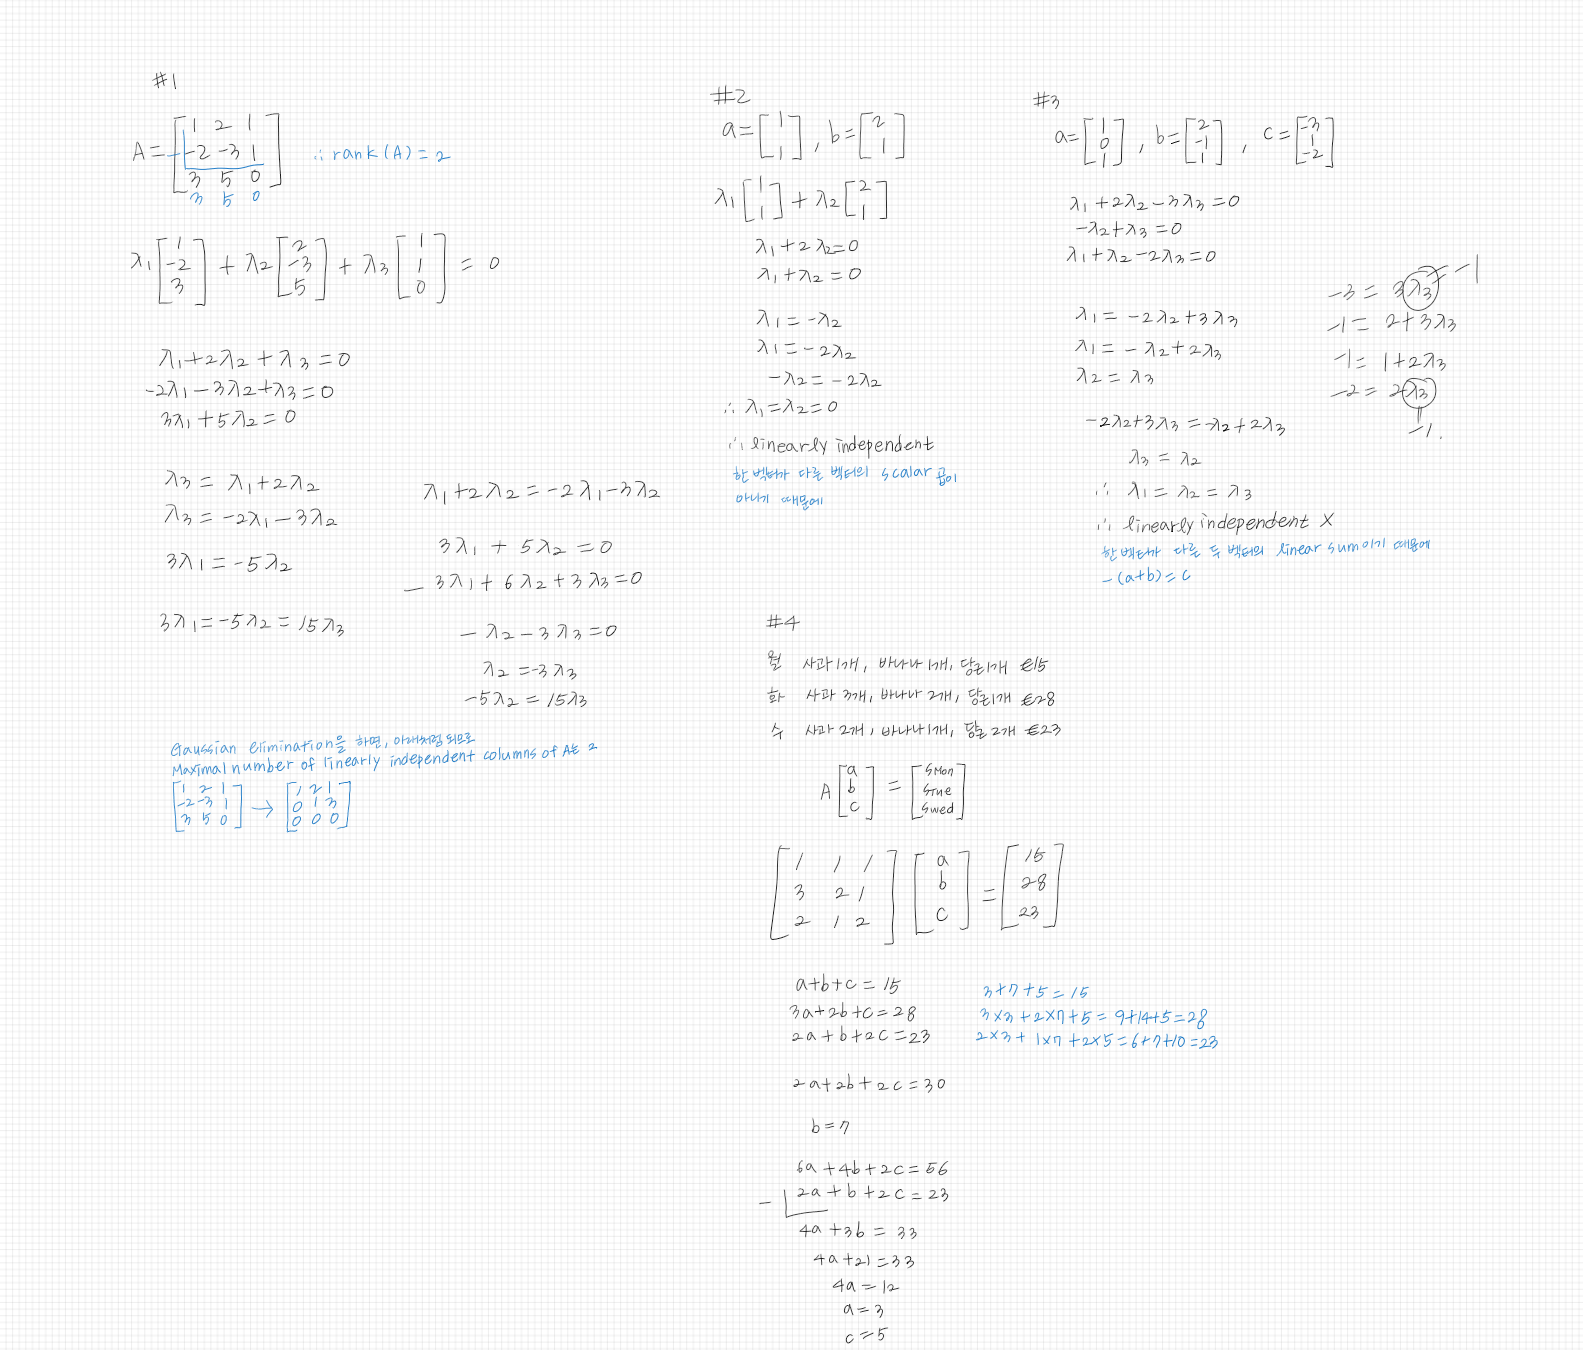 #1
A = [1 2 1
-2 -3 1
3 5 0]
3 5 0
∴ rank(A) = 2
λ1 [1 -2 3] + λ2 [2 -3 5] + λ3 [1 1 0] = 0
λ1 + 2λ2 + λ3 = 0
-2λ1 - 3λ2 + λ3 = 0
3λ1 + 5λ2 = 0
λ3 = λ1 + 2λ2
λ3 = -2λ1 - 3λ2
3λ1 = -5λ2
3λ1 = -5λ2 = 15λ3
λ1 + 2λ2 = -2λ1 - 3λ2
3λ1 + 5λ2 = 0
- 3λ1 + 6λ2 + 3λ3 = 0
-λ2 - 3λ3 = 0
λ2 = -3λ3
-5λ2 = 15λ3
Gaussian elimination을 하면, 아래처럼 되므로
Maximal number of linearly independent columns of A는 2
[1 2 1
-2 -3 1
3 5 0] → [1 2 1
0 1 3
0 0 0]
#2
a = [1 1], b = [2 1]
λ1 [1 1] + λ2 [2 1]
λ1 + 2λ2 = 0
λ1 + λ2 = 0
λ1 = -λ2
λ1 = -2λ2
-λ2 = -2λ2
∴ λ1 = λ2 = 0
∴ linearly independent
한 벡터가 다른 벡터의 scalar 곱이
아니기 때문에
#3
a = [1 0 1], b = [2 -1 1], c = [-3 1 -2]
λ1 + 2λ2 - 3λ3 = 0
-λ2 + λ3 = 0
λ1 + λ2 - 2λ3 = 0
λ1 = -2λ2 + 3λ3
λ1 = -λ2 + 2λ3
λ2 = λ3
-2λ2 + 3λ3 = -λ2 + 2λ3
λ3 = λ2
∴ λ1 = λ2 = λ3
∴ linearly independent X
한 벡터가 다른 두 벡터의 linear sum이기 때문에
-(a+b) = c
-3 = 3λ3 = -1
-1 = 2 + 3λ3
-1 = 1 + 2λ3
-2 = 2λ3
-1.
#4
월 사과 1개, 바나나 1개, 당근 1개 €15
화 사과 3개, 바나나 2개, 당근 1개 €28
수 사과 2개, 바나나 1개, 당근 2개 €23
A [a b c] = [SMon STue Swed]
[1 1 1
3 2 1
2 1 2] [a b c] = [15 28 23]
a+b+c = 15
3a+2b+c = 28
2a+b+2c = 23
3+7+5 = 15
3×3+2×7+5 = 9+14+5 = 28
2×3+1×7+2×5 = 6+7+10 = 23
2a+2b+2c = 30
b = 7
6a+4b+2c = 56
- 2a+b+2c = 23
4a+3b = 33
4a+21 = 33
4a = 12
a = 3
c = 5